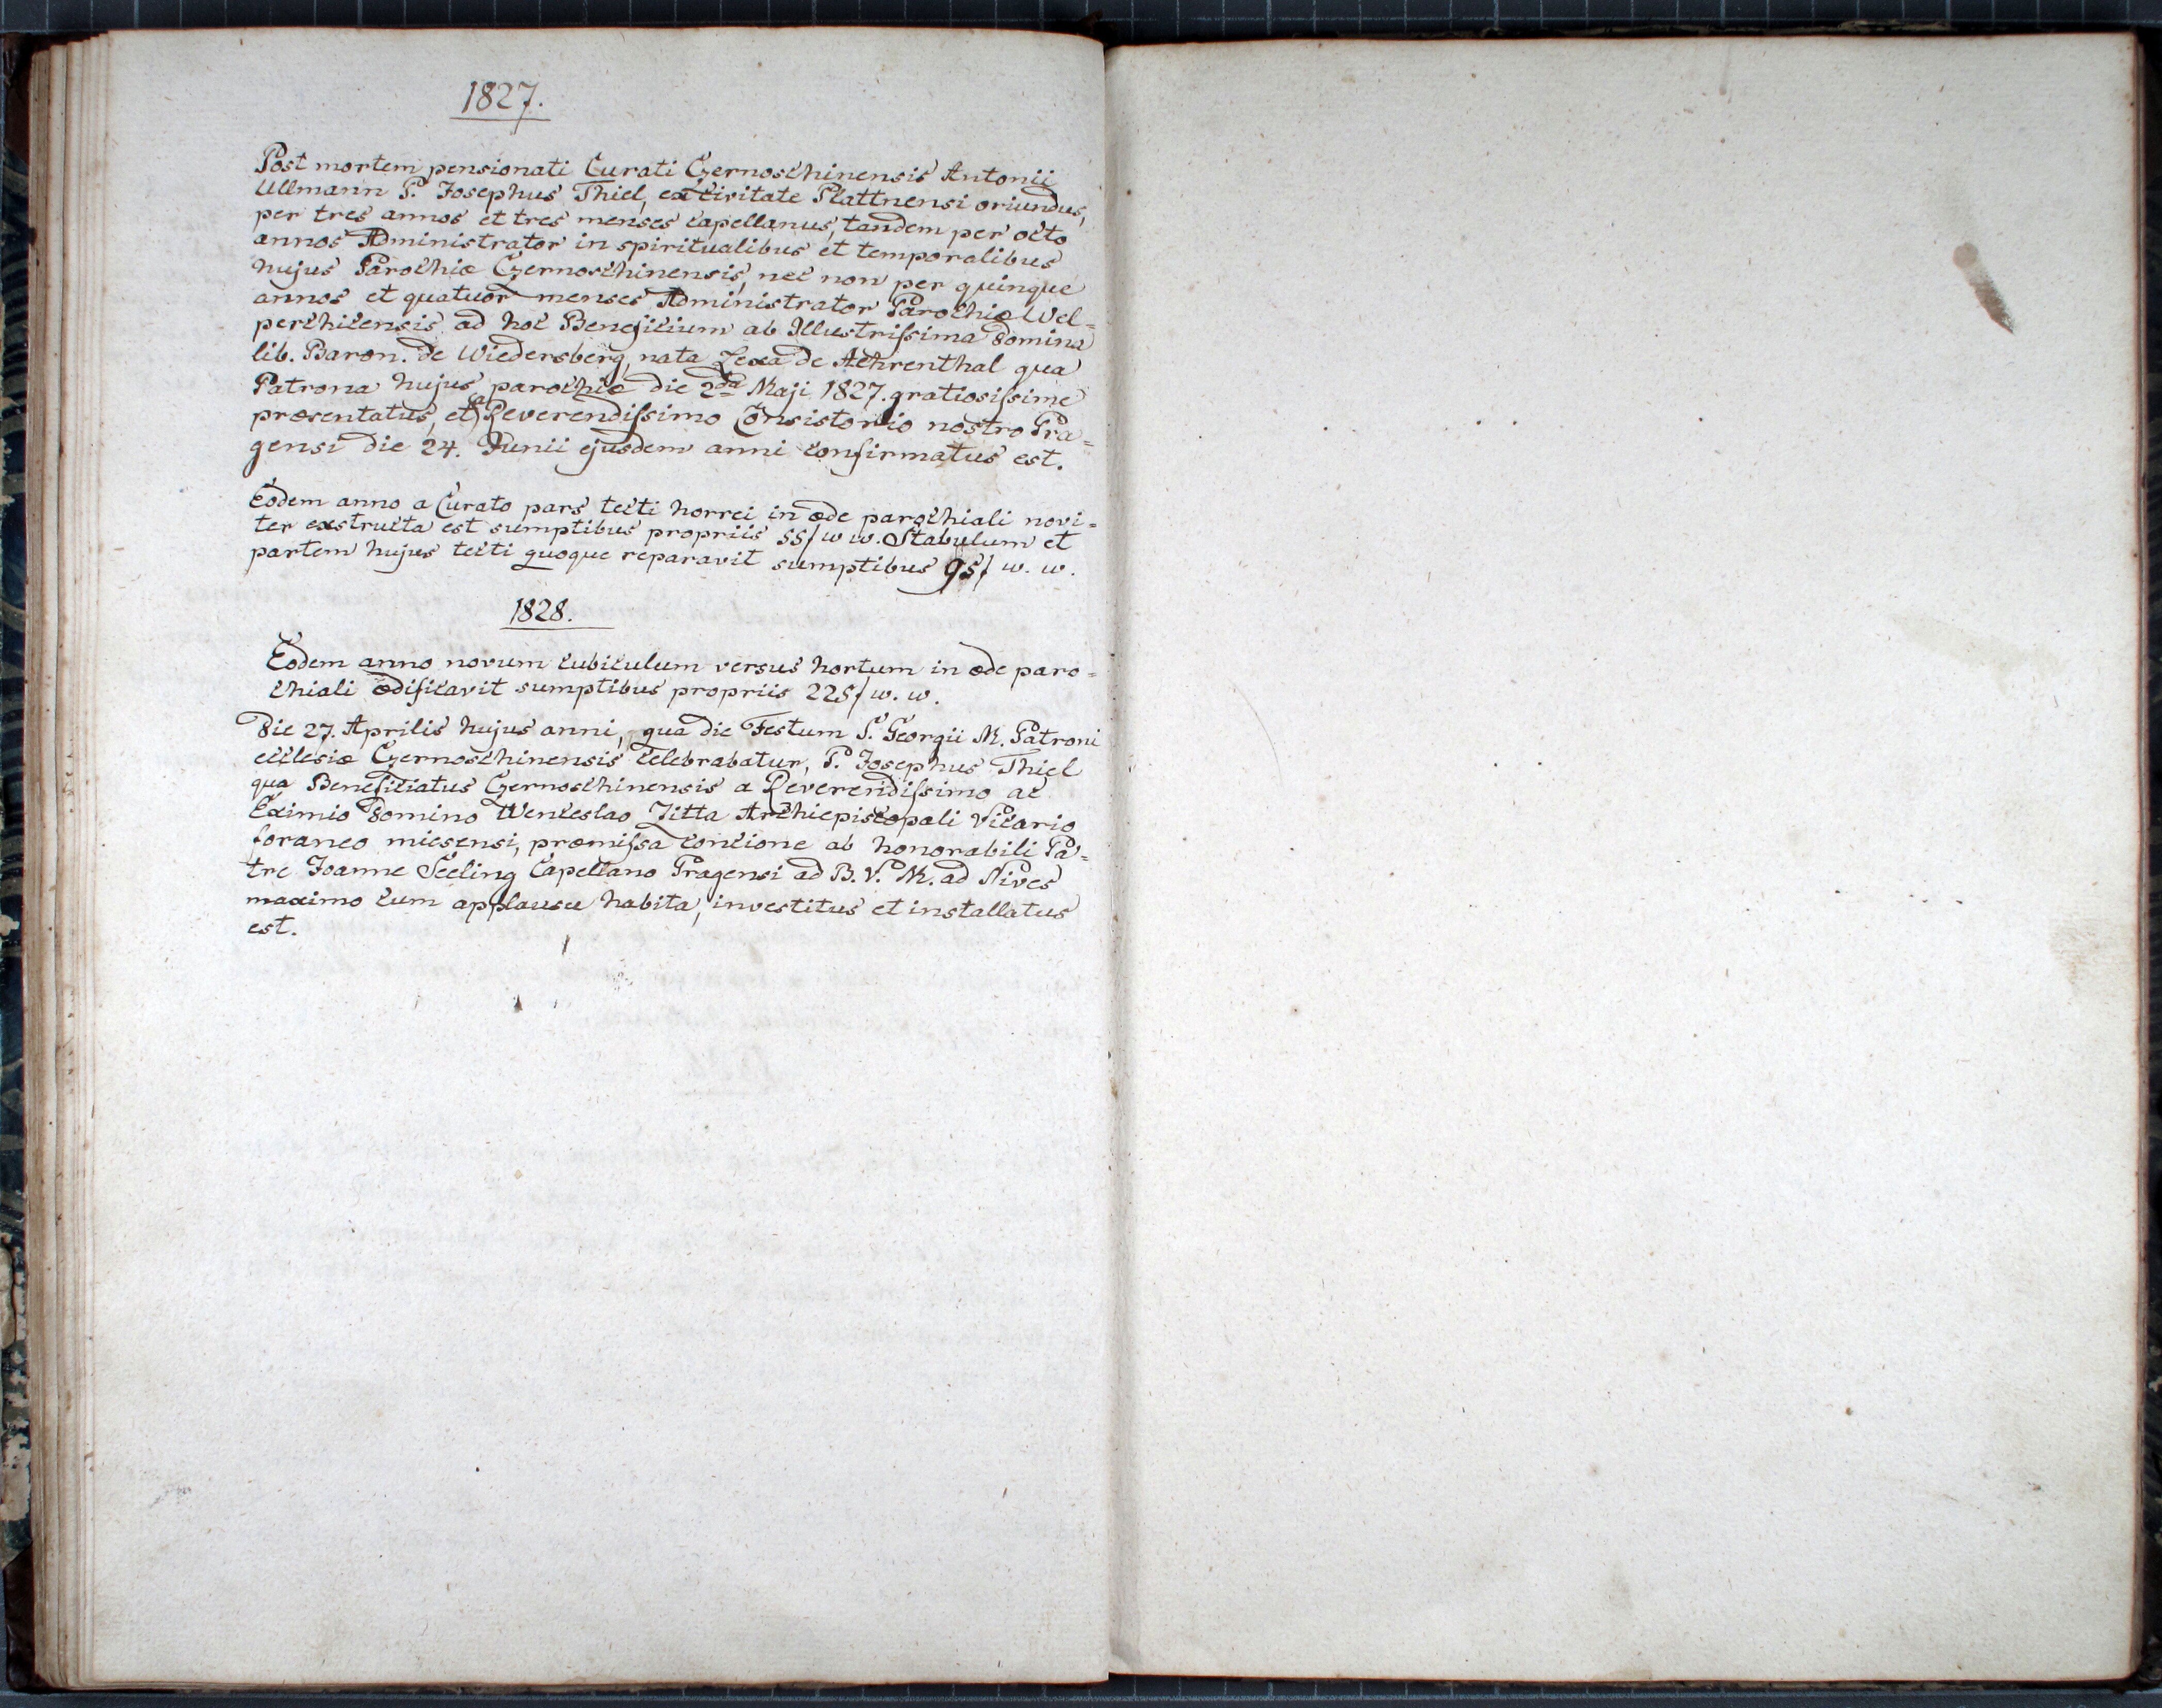 1827.
Post mortem pensionati Curati Czernoschinensis Antonii
Ullmann P. Josephus Thiel, ex civitate Plattnensi oriundus,
per tres annos et tres menses capellanus, tandem per octo
annos Administrator in spiritualibus et temporalibus
hujus Parochiæ Czernoschinensis, nec non per quinque
annos et quatuor menses Administrator Parochiæ Wel=
perchicensis ad hoc Beneficium ab Illustrissima Domina
lib. Baron. de Wiedersberg, nata Lexa de Aehrenthal qua
Patrona hujus parochiæ die 2da Maji 1827. gratiosissime
præsentatus, et a Reverendissimo Consistorio nostro Pra=
gensi die 24. Junii ejusdem anni confirmatus est.
Eodem anno a Curato pars tecti horrei in æde parochiali novi=
ter exstructa est sumptibus propriis 55f w w. Stabulum et
partem hujus tecti quoque reparavit sumptibus 95f w. w.
1828.
Eodem anno novum cubiculum versus hortum in æde paro=
chiali ædificavit sumptibus propriis 225f w. w.
Die 27. Aprilis hujus anni, qua die Festum S. Georgii M. Patroni
ecclesiæ Czernoschinensis celebrabatur, P. Josephus Thiel
qua Beneficiatus Czernoschinensis a Reverendissimo ac
Eximio Domino Wenceslao Zitta Archiepiscopali Vicario
foraneo miesensi, præmissa concione ab honorabili Pa=
tre Joanne Seeling Capellano Pragensi ad B. V. M. ad Nives
maximo cum applausu habita, investitus et installatus
est.